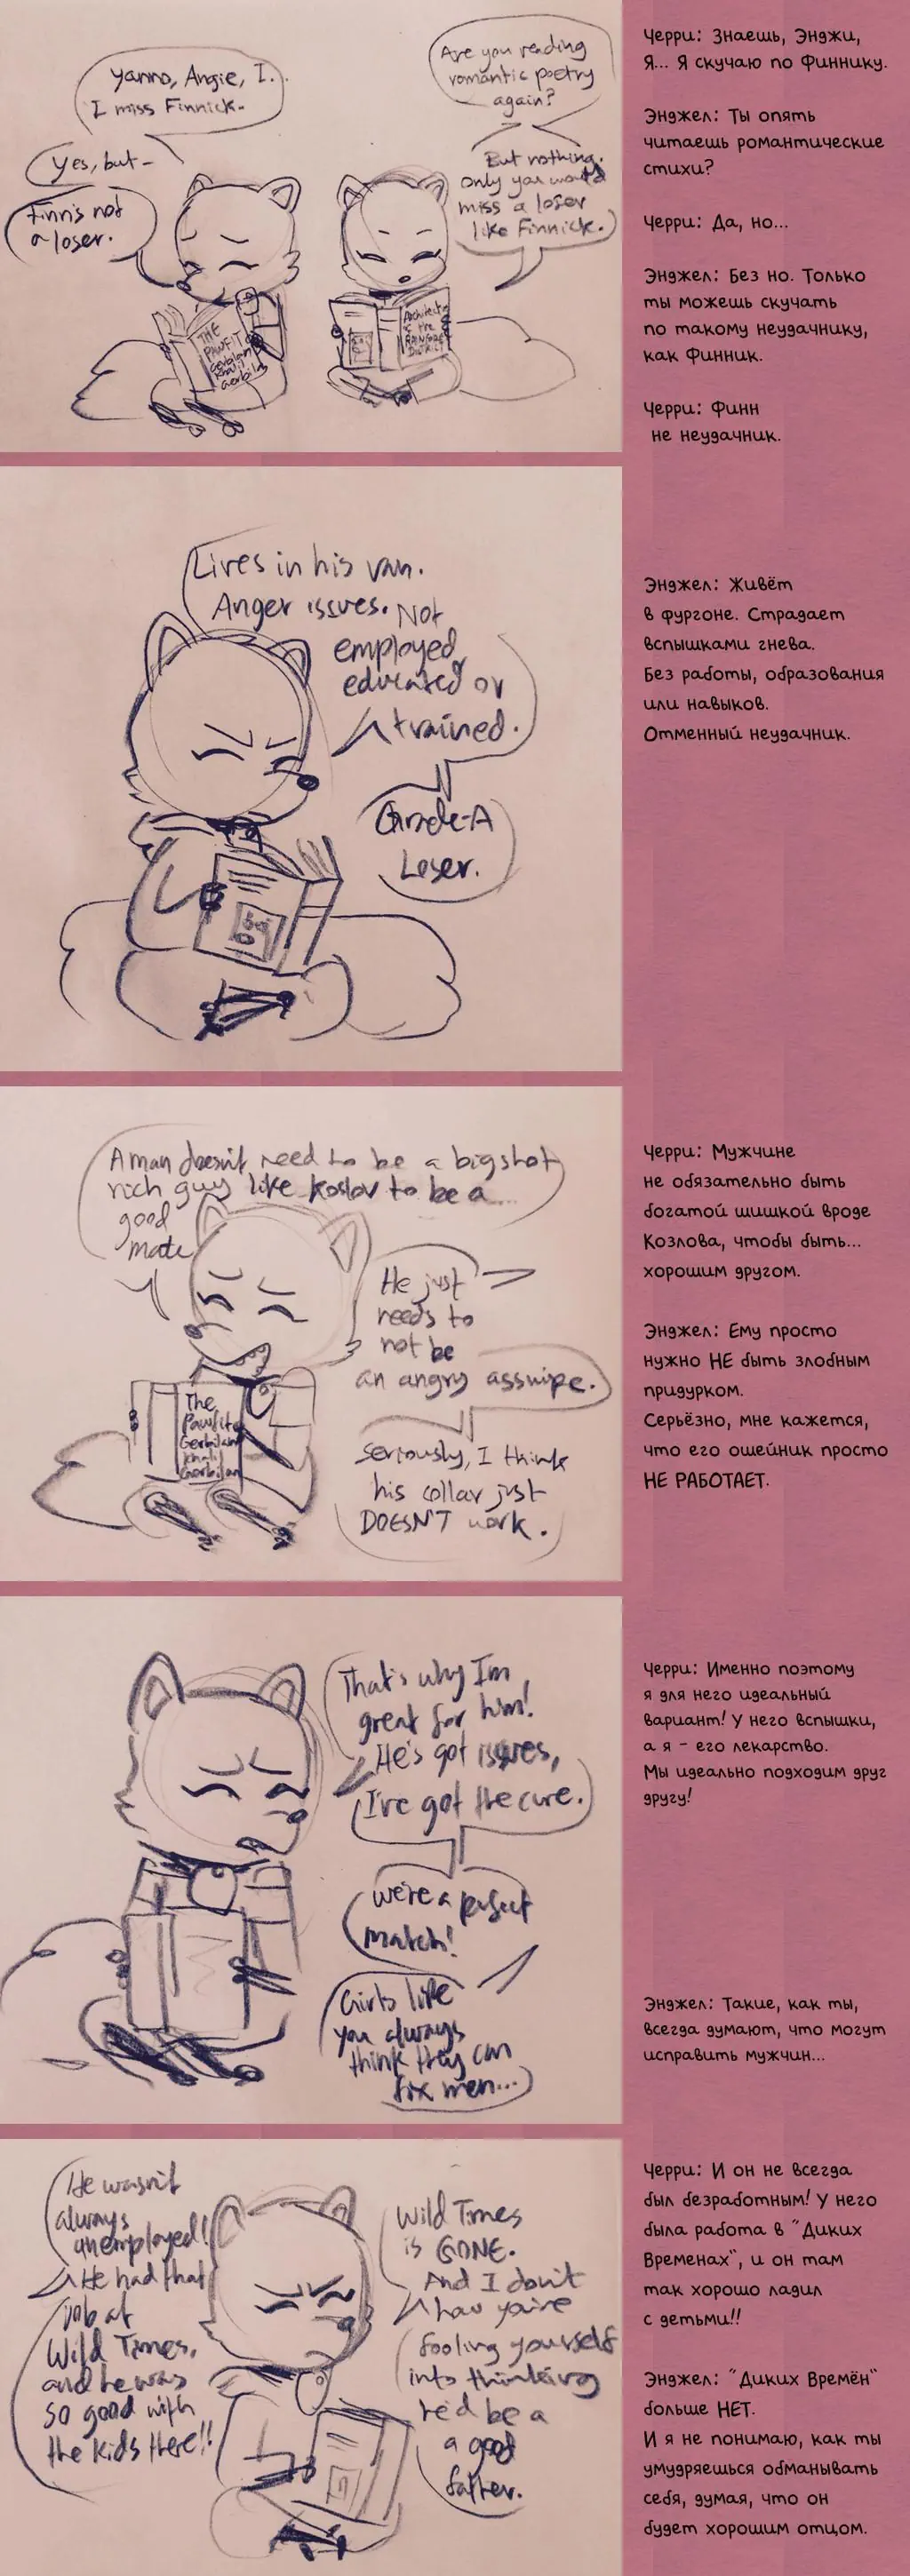 yanno, Angie, I.
I miss Finnick.
Are you reading
romantic poetry
again?
Yes, but-
But nothing.
only you would
miss a loser
like Finnick.
Finn's not
a loser.
THE
PAWFIT
Gerbilan
Khalil
Gerbilan
Architecture
of the
RAINFOREST
DISTRICT
Черри: Знаешь, Энджи,
Я... Я скучаю по Финнику.
Энджел: Ты опять
читаешь романтические
стихи?
Черри: Да, но...
Энджел: Без но. Только
ты можешь скучать
по такому неудачнику,
как Финник.
Черри: Финн
не неудачник.
Lives in his van.
Anger issues. Not
employed,
educated or
trained.
Grade-A
Loser.
Энджел: Живёт
в фургоне. Страдает
вспышками гнева.
Без работы, образования
или навыков.
Отменный неудачник.
A man doesn't need to be a bigshot
rich guy like Koslov to be a...
good
mate
He just
needs to
not be
an angry asswipe.
The
Pawfit
Gerbilan
Khalil
Gerbilan
Seriously, I think
his collar just
DOESN'T work.
Черри: Мужчине
не обязательно быть
богатой шишкой вроде
Козлова, чтобы быть...
хорошим другом.
Энджел: Ему просто
нужно НЕ быть злобным
придурком.
Серьёзно, мне кажется,
что его ошейник просто
НЕ РАБОТАЕТ.
That's why I'm
great for him!
He's got issues,
I've got the cure.
We're a perfect
match!
Girls like
you always
think they can
fix men...
Черри: Именно поэтому
я для него идеальный
вариант! У него вспышки,
а я - его лекарство.
Мы идеально подходим друг
другу!
Энджел: Такие, как ты,
всегда думают, что могут
исправить мужчин...
He wasn't
always
unemployed!
He had that
job at
Wild Times,
and he was
so good with
the kids there!!
Wild Times
is GONE.
And I don't
how you're
fooling yourself
into thinking
he'd be a
a good
father.
Черри: И он не всегда
был безработным! У него
была работа в "Диких
Временах", и он там
так хорошо ладил
с детьми!!
Энджел: "Диких Времён"
больше НЕТ.
И я не понимаю, как ты
умудряешься обманывать
себя, думая, что он
будет хорошим отцом.